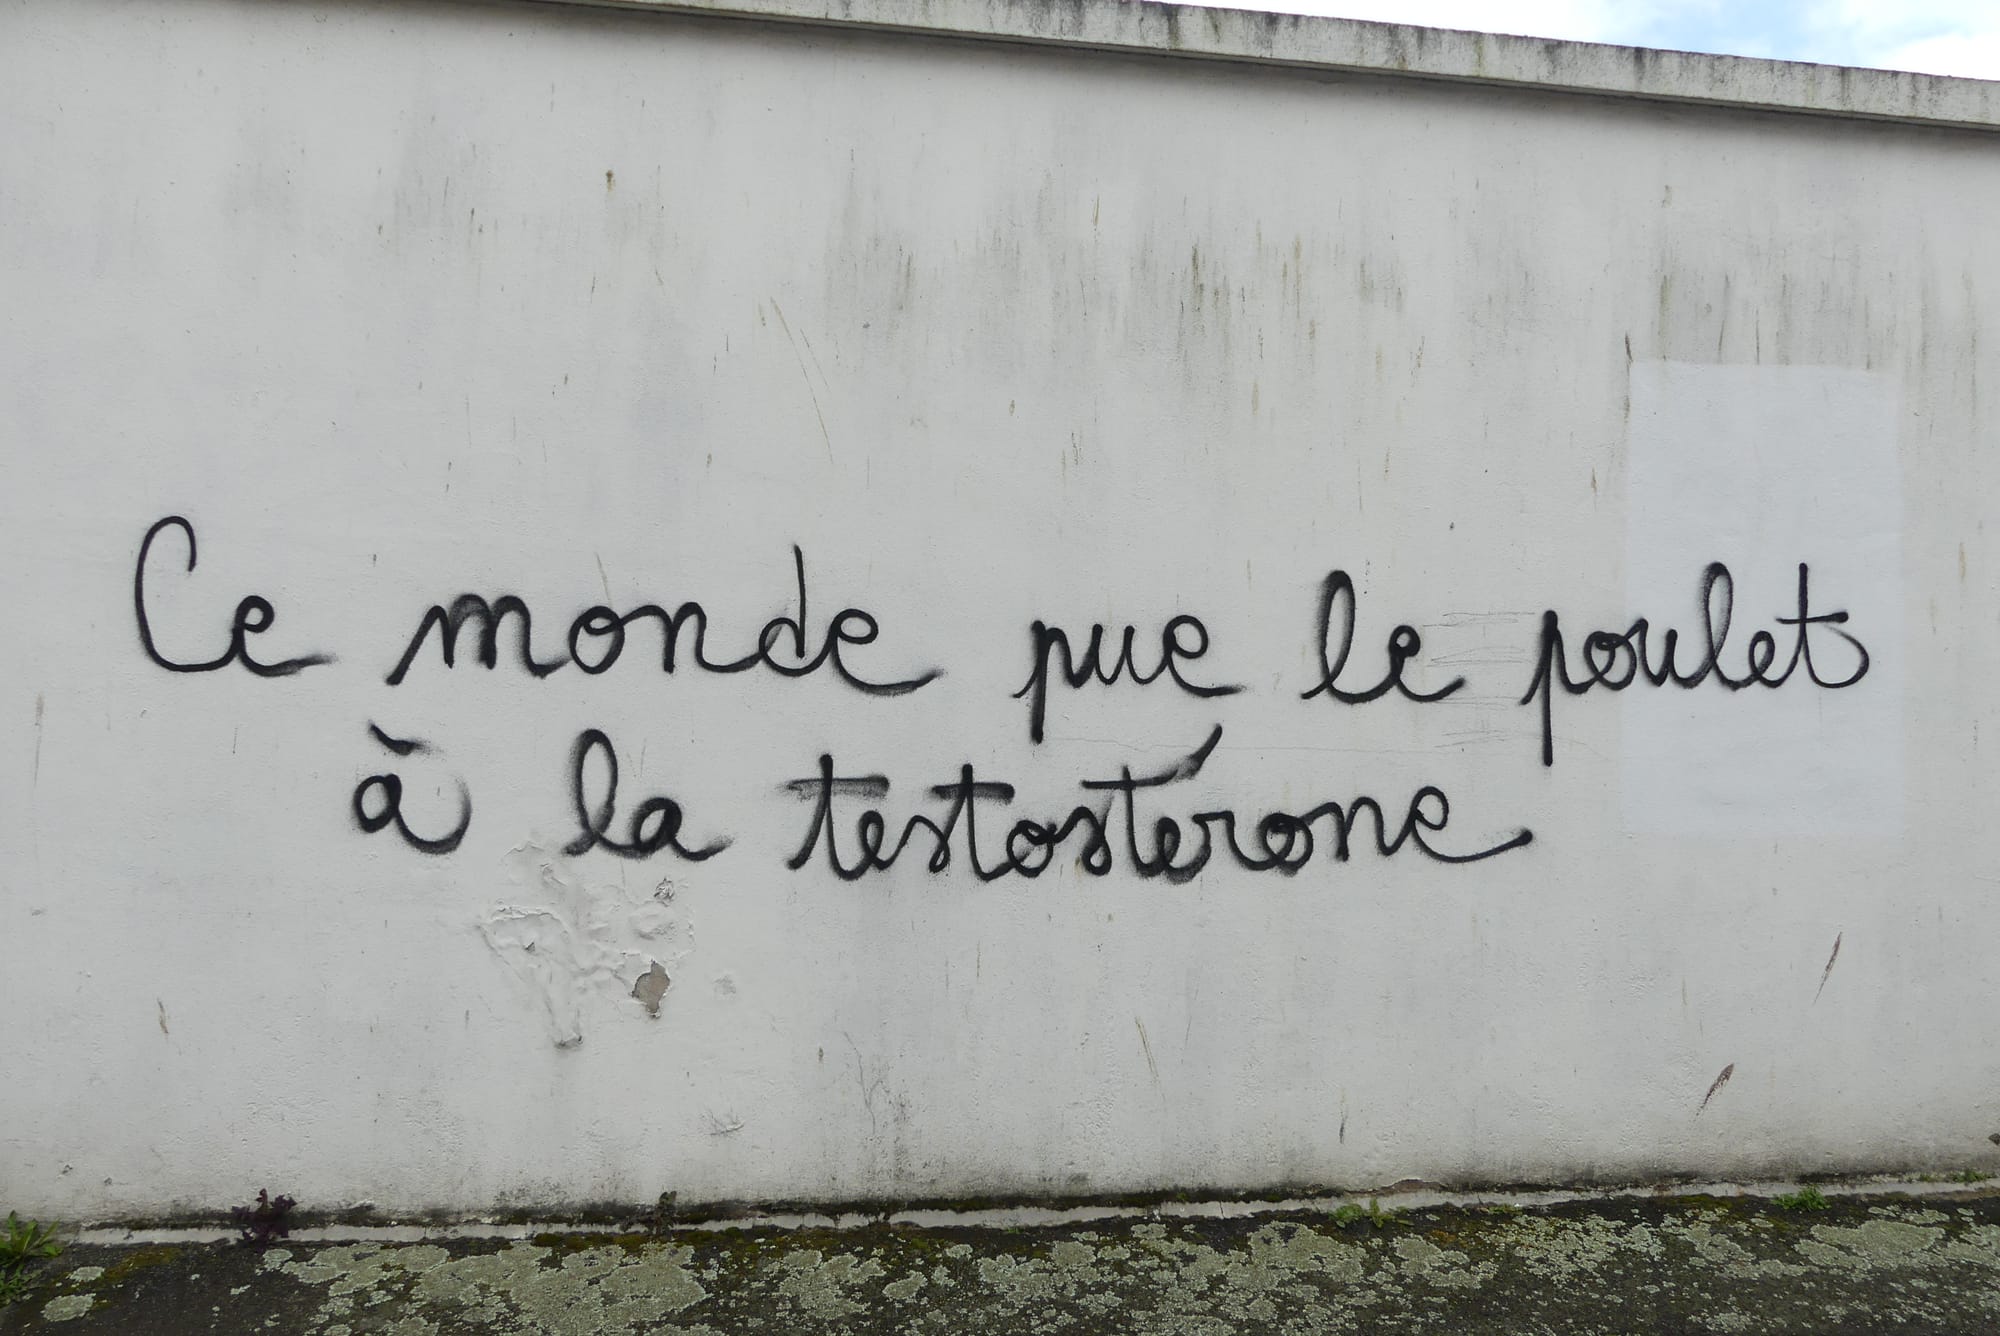 Ce monde pue le poulet
à la testostérone